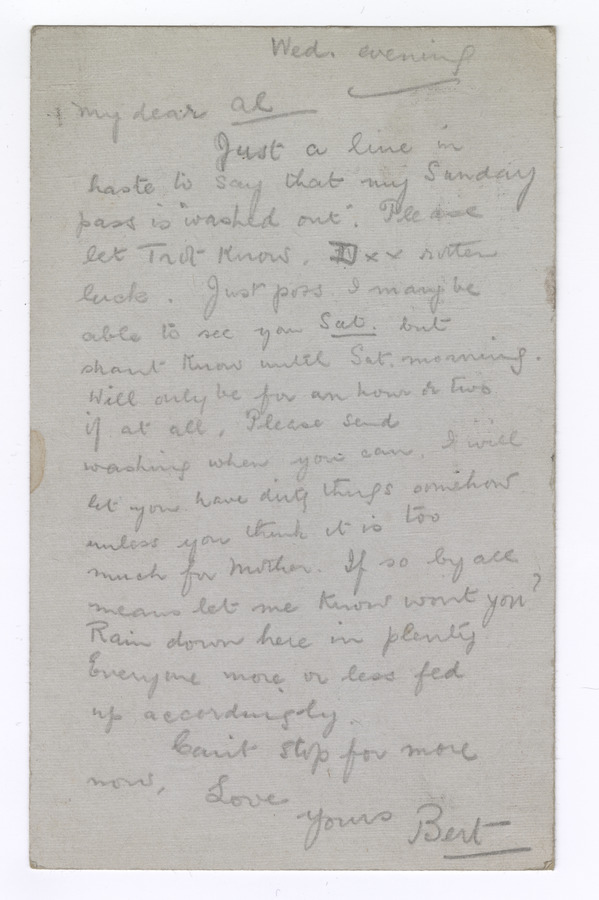 Wed. evening
My dear Al
Just a line in
haste to say that my Sunday
pass is "washed out". Please
let Trot know. D x x rotten
luck. Just poss I may be
able to see you Sat. but
shant know until Sat. morning.
Will only be for an hour or two
if at all, Please send
washing when you can. I will
let you have dirty things somehow
unless you think it is too
much for Mother. If so by all
means let me know won't you?
Rain down here in plenty
Everyone more or less fed
up accordingly.
Can't stop for more
now, Love
Yours Bert